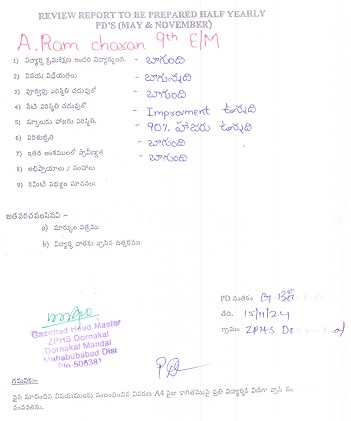 REVIEW REPORT TO BE PREPARED HALF YEARLY
PD'S (MAY & NOVEMBER)
A.Ram charan 9th E/M
1) విద్యార్థి క్రమశిక్షణ అందరి విద్యార్థులందు. - బాగుంది
2) విషయ విధేయతలు - బాగున్నది
3) పూర్వపు పరిస్థితి చదువులో - బాగుంది
4) నేటి పరిస్థితి చదువులో - Improvment ఉన్నది
5) స్కూలుకు హాజరు పరిస్థితి. - 90% హాజరు ఉన్నది
6) పరిశుభ్రత - బాగుంది
7) ఇతర అంశములలో ప్రావీణ్యత - బాగుంది
8) అభిప్రాయాలు / సలహాలు
9) కమిటీ సభ్యుల సూచనలు
జతపరచవలసినవి :-
a) మార్కుల పత్రము
b) విద్యార్థి దాతకు వ్రాసిన ఉత్తరము
PD సంతకం
తేది. 15/11/24
గ్రామం ZPHS
Gazetted Head Master
ZPHS Dornakal
Dornakal Mandal
Mahabubabad Dist
Pin-506381
గమనిక:-
పైన సూచించిన విషయములకు సంబంధించిన వివరణ A4 సైజు కాగితముపై ప్రతి విద్యార్థికి విడిగా వ్రాసి
పంపవలెను.